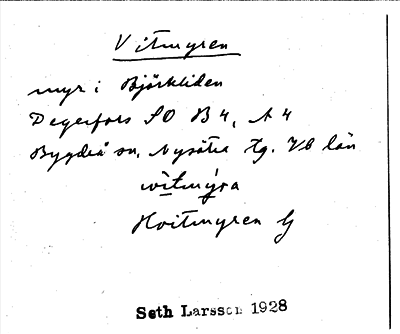 Vitmyren
myr i Björkliden
Degerfors SO B4, A4
Bygdeå sn, Nysätra tg. Vb län
witmýra
Hvitmyren G
Seth Larsson 1928